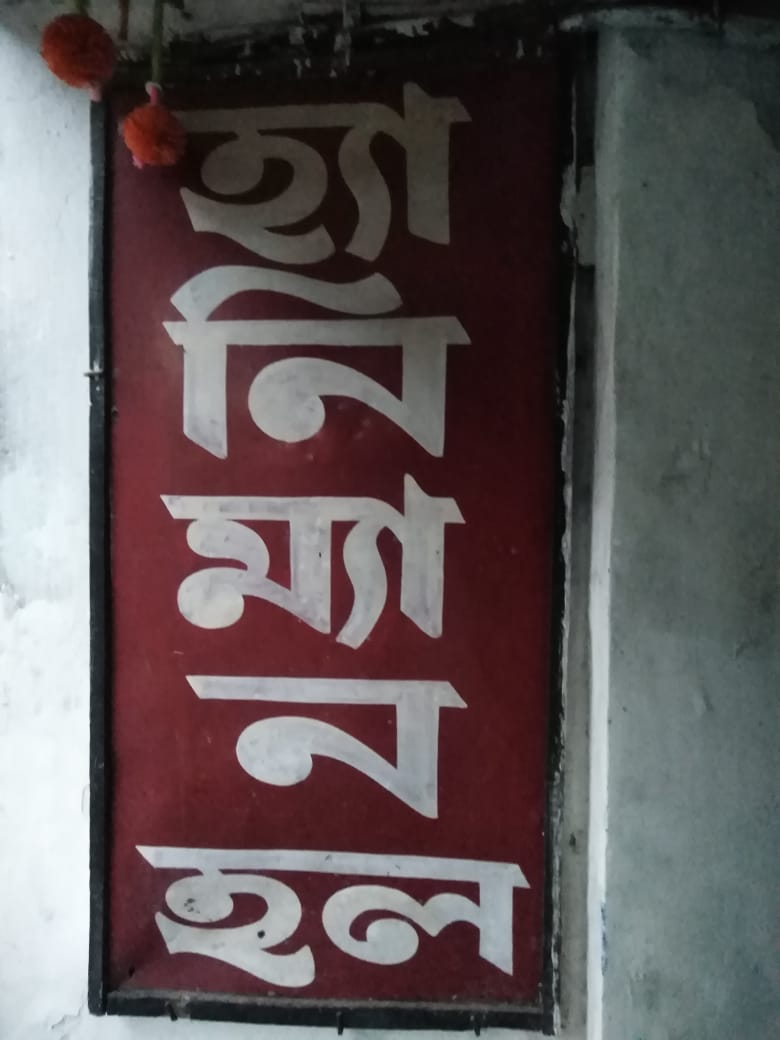 হ্যা
নি
ম্যা
ন
হল